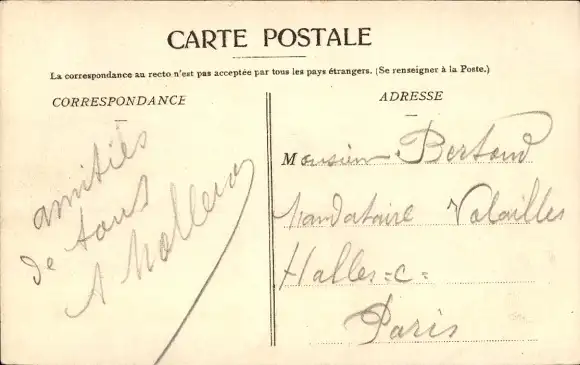 CARTE POSTALE
La correspondance au recto n'est pas acceptée par tous les pays étrangers. (Se renseigner à la Poste.)
CORRESPONDANCE
amitiés
de tous
A
ADRESSE
Monsieur Bertoud
Mandataire Volailles
Halles=C=
Paris